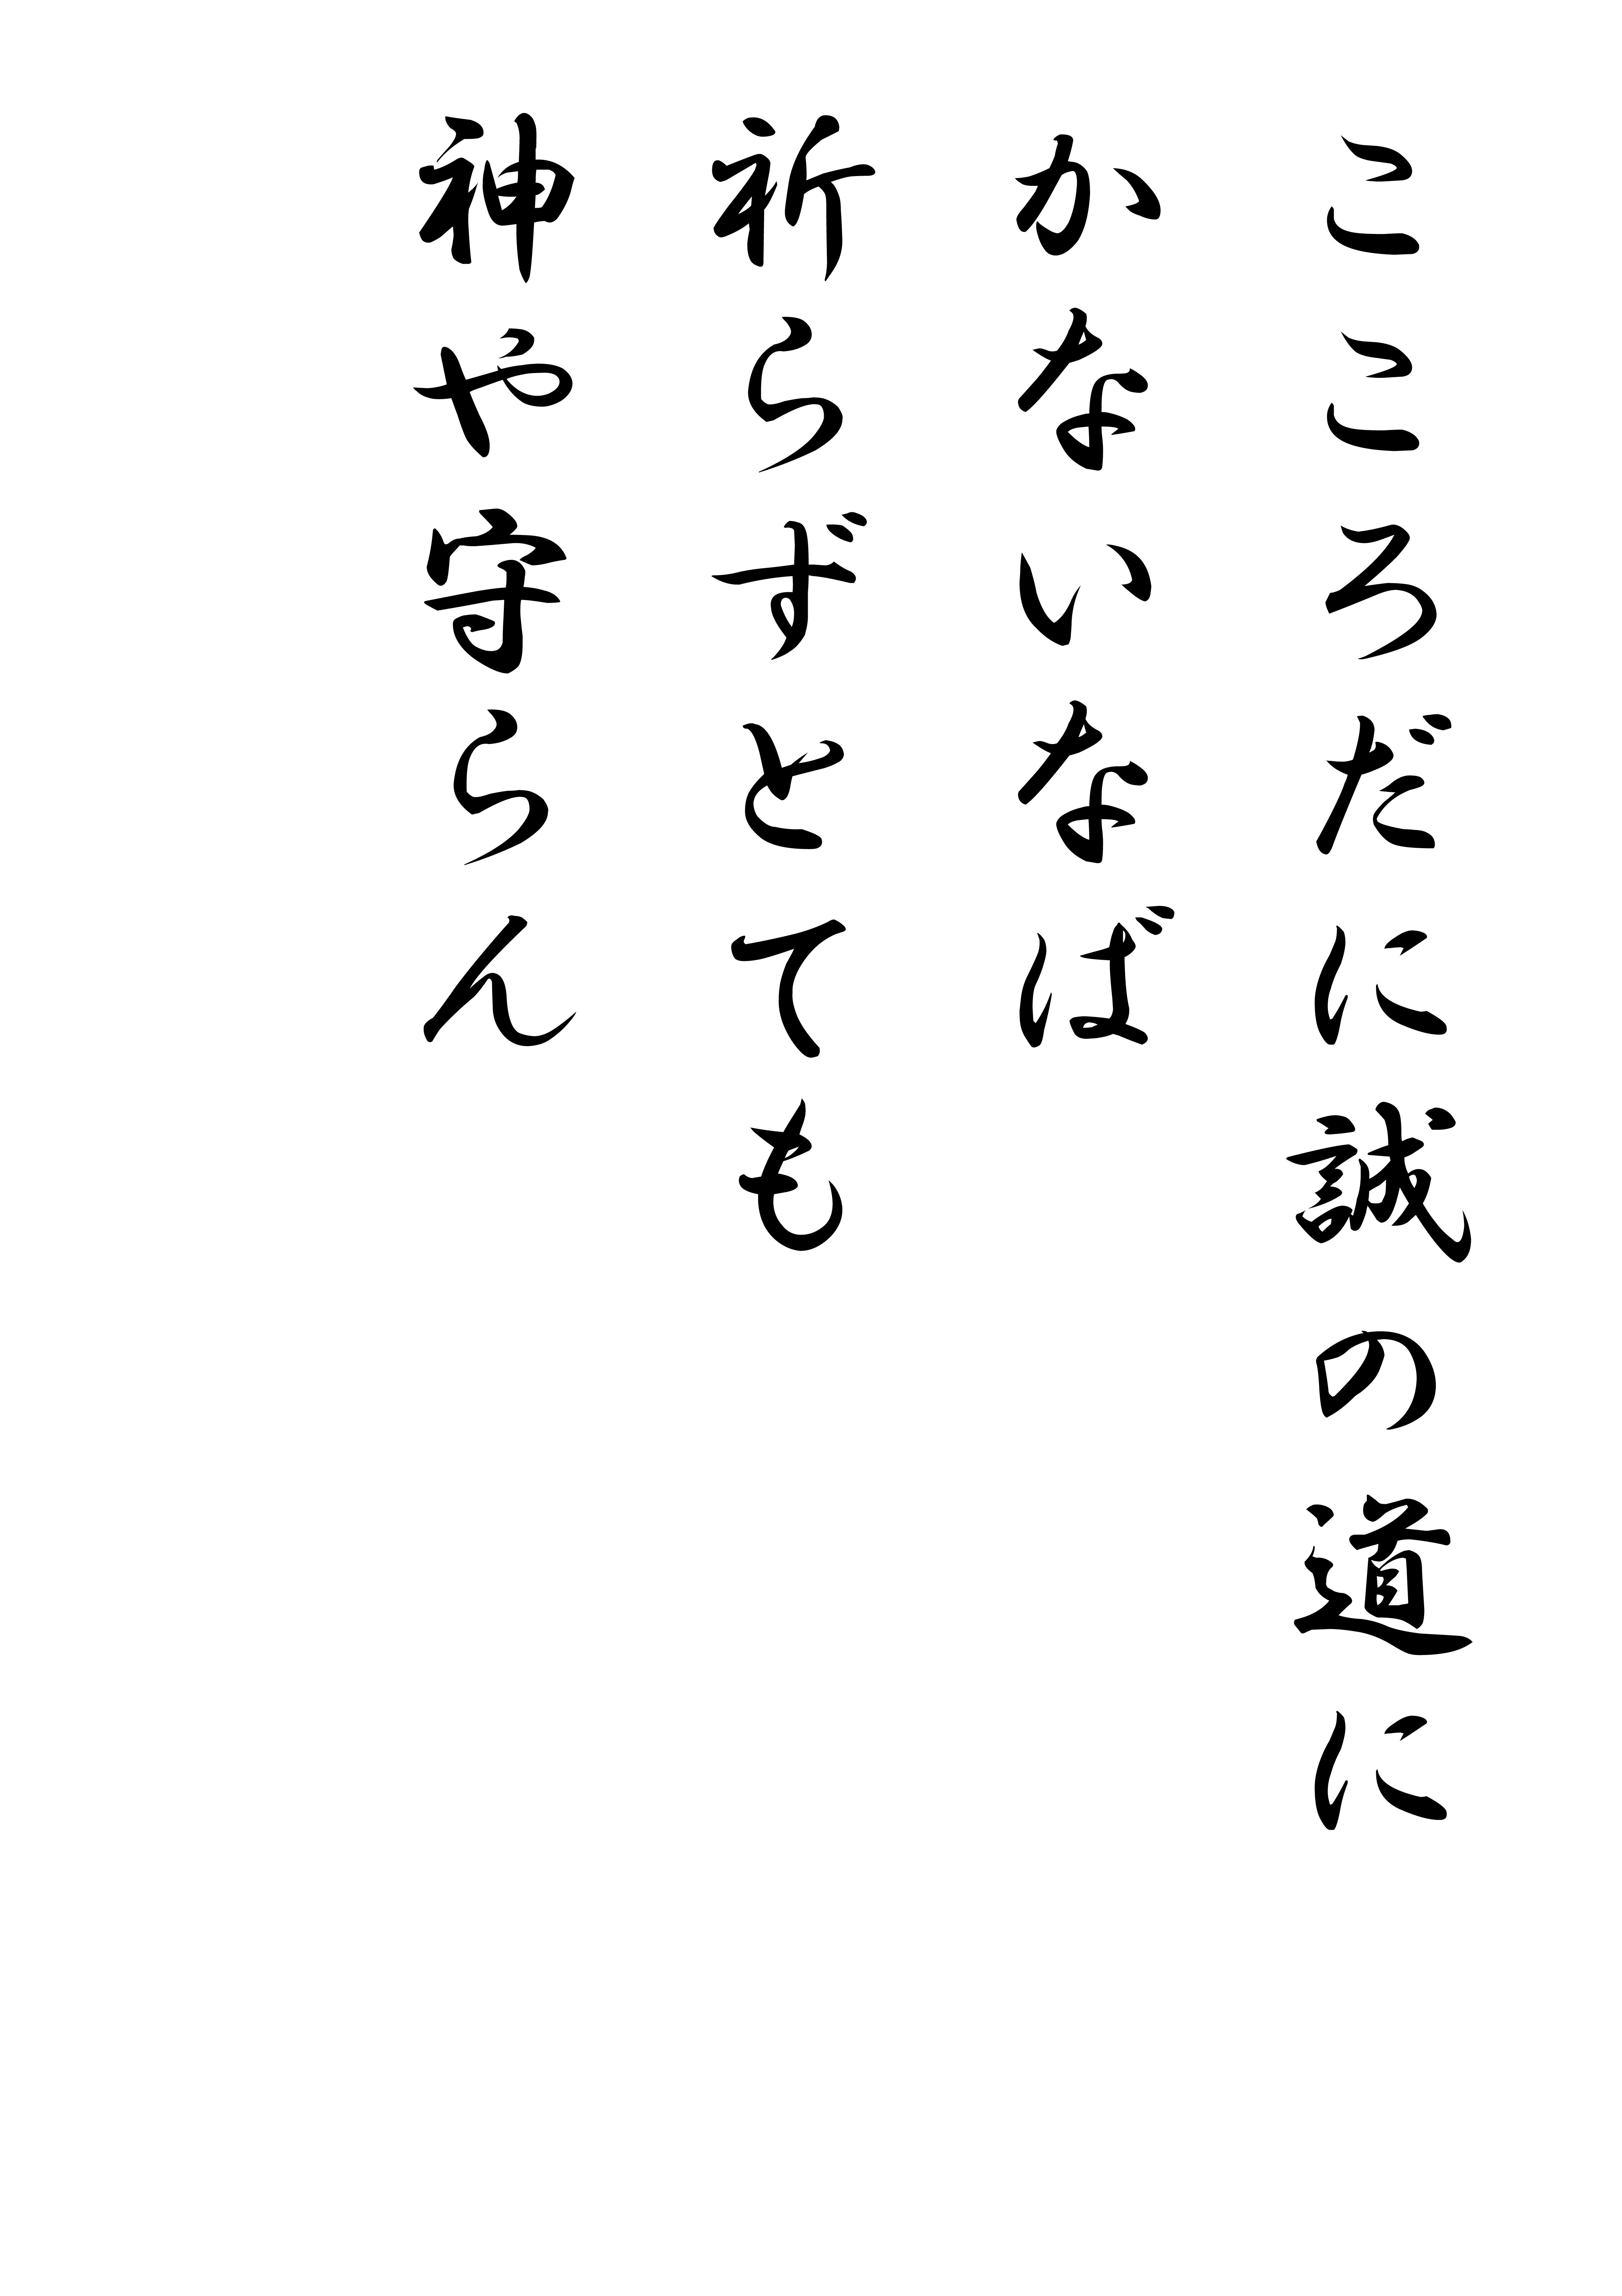 こころだに誠の道に
かないなば
祈らずとても
神や守らん